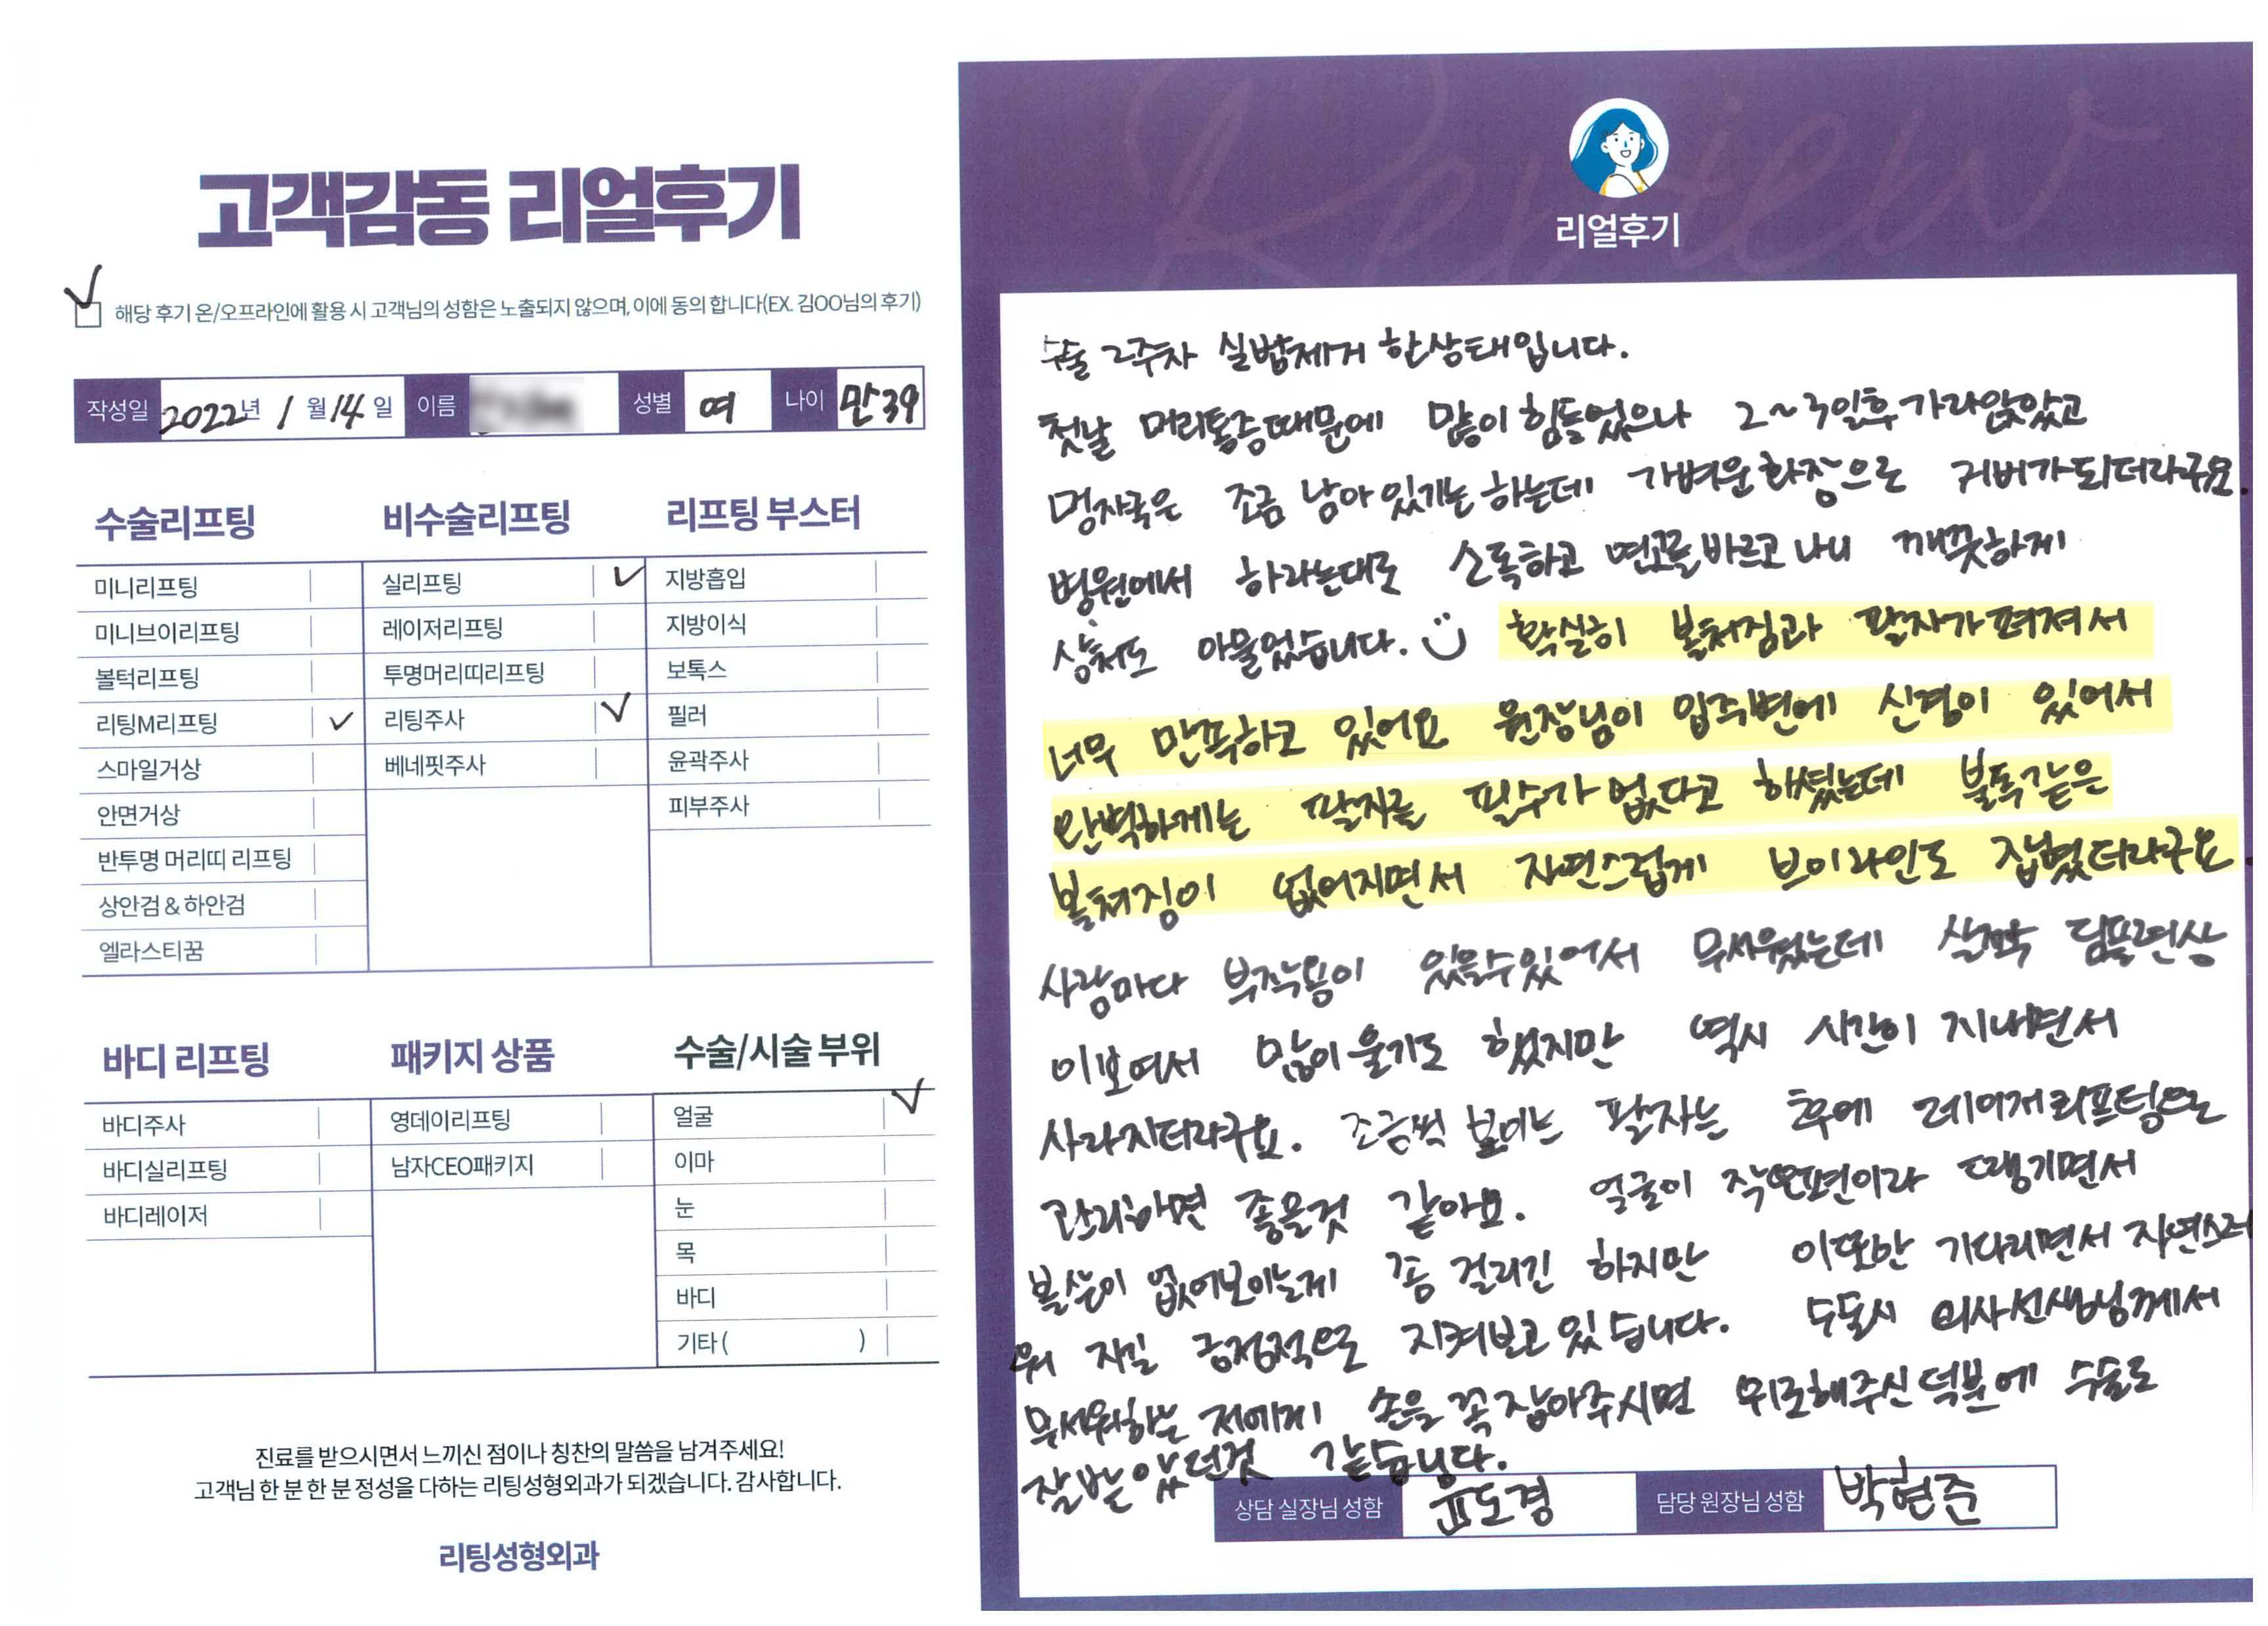 고객감동 리얼후기
해당 후기 온/오프라인에 활용 시 고객님의 성함은 노출되지 않으며, 이에 동의 합니다(EX. 김OO님의 후기)
작성일 2022년 1월 14일 이름 성별 여 나이 만39
수술리프팅
미니리프팅
미니브이리프팅
볼턱리프팅
리팅M리프팅 ✓
스마일거상
안면거상
반투명 머리띠 리프팅
상안검 & 하안검
엘라스티꿈
비수술리프팅
실리프팅 ✓
레이저리프팅
투명머리띠리프팅
리팅주사 ✓
베네핏주사
리프팅 부스터
지방흡입
지방이식
보톡스
필러
윤곽주사
피부주사
바디 리프팅
바디주사
바디실리프팅
바디레이저
패키지 상품
영데이리프팅
남자CEO패키지
수술/시술 부위
얼굴 ✓
이마
눈
목
바디
기타 ( )
진료를 받으시면서 느끼신 점이나 칭찬의 말씀을 남겨주세요!
고객님 한 분 한 분 정성을 다하는 리팅성형외과가 되겠습니다. 감사합니다.
리팅성형외과
Review
리얼후기
수술 2주차 실밥제거 한상태입니다.
첫날 머리통증때문에 많이 힘들었으나 2~3일후 가라앉았고
멍자국은 조금 남아있기는 하는데 가벼운화장으로 커버가되더라구요.
병원에서 하라는대로 소독하고 연고를바르고나니 깨끗하게
상처도 아물었습니다. 확실히 볼처짐과 팔자가펴져서
너무 만족하고 있어요 원장님이 입주변에 신경이 있어서
완벽하게는 팔자를 필수가없다고 하셨는데 불독같은
볼처짐이 없어지면서 자연스럽게 브이라인도 잡혔더라구요.
사람마다 부작용이 있을수있어서 무서웠는데 살짝 딤플현상
이보여서 많이울기도 했지만 역시 시간이 지내면서
사라지더라구요. 조금씩 보이는 팔자는 후에 레이저리프팅으로
관리하면 좋을것 같아요. 얼굴이 작은편이라 땡기면서
볼살이 없어보이는게 좀 걸리긴 하지만 이또한 기다리면서 자연스러
워 지길 긍정적으로 지켜보고있습니다. 수술시 의사선생님께서
무서워하는 저에게 손을 꼭잡아주시면 위로해주신덕분에 수술도
잘받았던것 같습니다.
상담 실장님 성함 윤도경 담당 원장님 성함 박현준